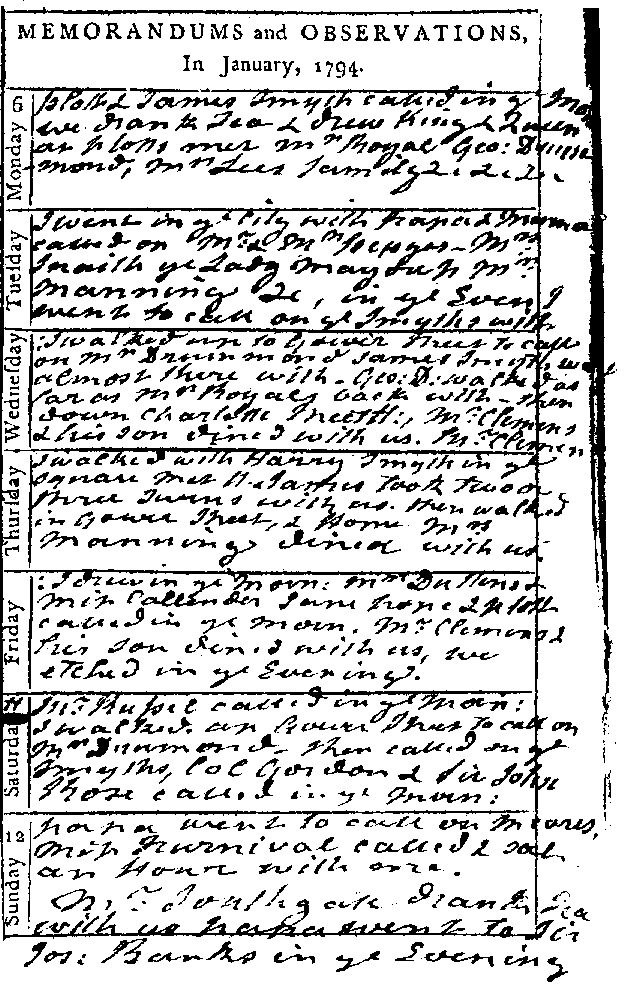 MEMORANDUMS and OBSERVATIONS,
In January, 1794.
Monday 6
James Smyth called in ye Morn
we drank Tea & drew King & Queen
at Plotts met Mrs Royal Geo: Drum
mond, Mrs Lees family &c &c &c
Tuesday
I went in ye City with Papa & Mamma
called on Mr & Mrs Mrs
Smith ye Lady Mayoress Mrs
Manning &c, in ye Even I
went to call on ye Smyths with
Wednesday
I walked up to Gower Street to call
on Mrs Drummond James Smyth
almost there with. Geo: D: walked as
far as Mrs Royals back with - then
down Charlotte Street &c, Mr Clemens
& his son dined with us. Mr Clemen
Thursday
I walked with Harry Smyth in ye
square met James took two or
three turns with us. then walked
in Gower Street, & home Mrs
Manning dined with us.
Friday
: I drew in ye Morn: Mrs &
Miss Callender Jane Pope & Plott
called in ye Morn. Mr Clemens &
his son dined with us, we
etched in ye Evening.
Saturday 11
Mr Russel called in ye Morn:
I walked up Gower Street to call on
Mrs Drummond - then called on ye
Smyths, Col Gordon & Sir John
Rose called in ye Morn:
Sunday 12
Papa went to call on Meares,
Miss Furnival called & sat
an hour with me.
Mr Southgate drank Tea
with us Papa went to Sir
Jos: Banks in ye Evening